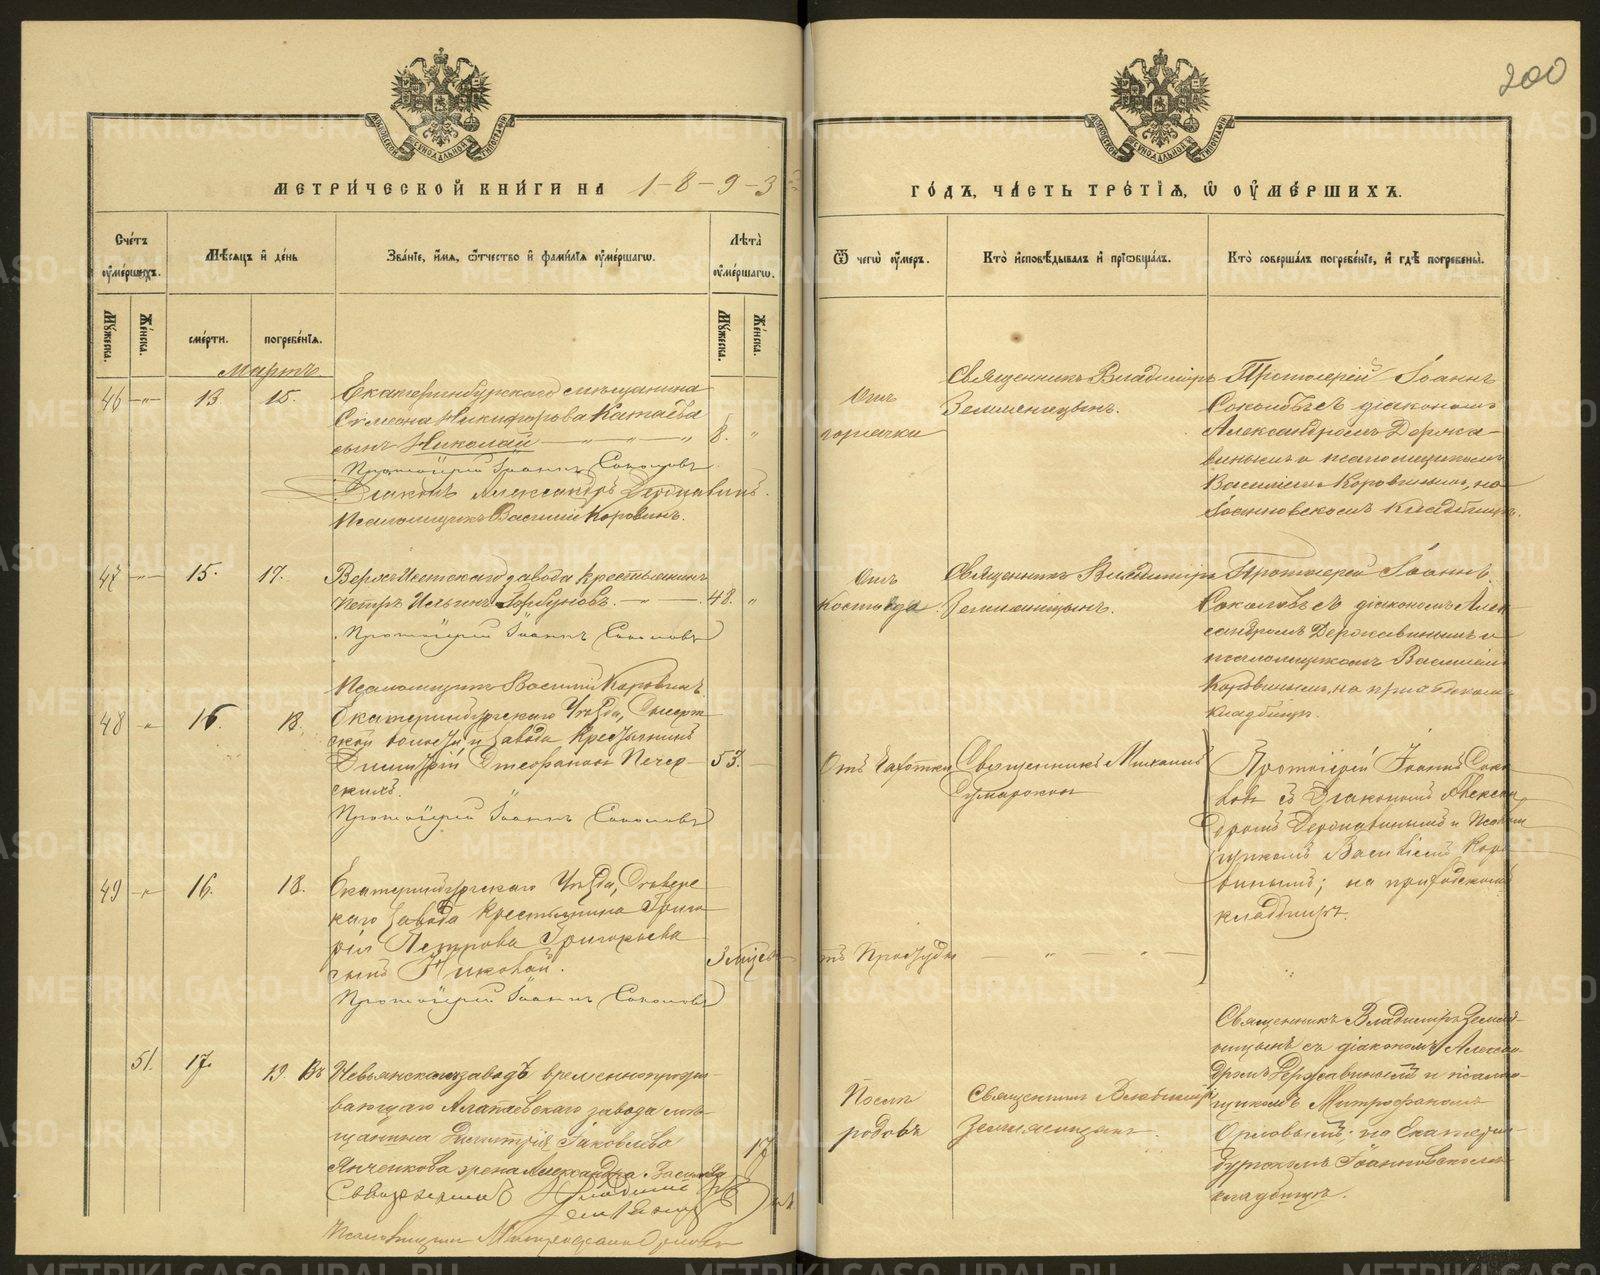 200
МЕТРИ́ЧЕСКОЙ КНИ́ГИ НА 1-8-9-3
ГО́ДЪ, ЧА́СТЬ ТРЕ́ТІЯ, Ѡ ОУ҆МЕ́РШИХЪ.
Сче́тъ оу҆ме́ршихъ.
Мѣ́сяцъ и҆ де́нь
Зва́нїе, и҆́мя, ѻ҆́тчество и҆ фами́лїя оу҆ме́ршагѡ.
Лѣта̀ оу҆ме́ршагѡ.
Ѿ чегѡ̀ оу҆́меръ.
Кто̀ и҆сповѣ́дывалъ и҆ прїѡбща́лъ.
Кто̀ соверша́лъ погребе́нїе, и҆ гдѣ̀ погребены̀.
Му́жеска.
Же́нска.
сме́рти.
погребе́нїя.
Му́жеска.
Же́нска.
Мартъ
46 — 13. 15.
Екатеринбургскаго мѣщанина
Симеона Никифорова Катаева
сынъ Николай
8.
Протоіерей Іоаннъ Соколовъ
Діаконъ Александръ Державинъ.
Псаломщикъ Василій Коровинъ.
Отъ
горячки
Священникъ Владиміръ
Земляницынъ.
Протоіерей Іоаннъ
Соколовъ съ діакономъ
Александромъ Держа-
винымъ и псаломщикомъ
Василіемъ Коровинымъ, на
Іоанновскомъ кладбищѣ.
47 — 15. 17.
Верхъ-Исетскаго завода крестьянинъ
Петръ Ильинъ Горбуновъ. 48.
Протоіерей Іоаннъ Соколовъ
Псаломщикъ Василій Коровинъ.
Отъ
Священникъ Владиміръ
Земляницынъ.
Протоіерей Іоаннъ
Соколовъ съ діакономъ Алек-
сандромъ Державинымъ и
псаломщикомъ Василіемъ
Коровинымъ, на приходскомъ
кладбищѣ.
48 16 18.
Екатеринбургскаго Уѣзда, Сысерт-
ской волости и завода крестьянинъ
Димитрій Стефановъ Печер-
скихъ.
53.
Протоіерей Іоаннъ Соколовъ
Отъ Чахотки
Священникъ Михаилъ
Сумароковъ
Протоіерей Іоаннъ Соко-
ловъ съ Діакономъ Алексан-
дромъ Державинымъ и Псалом-
щикомъ Василіемъ Коро-
винымъ; на приходскомъ
кладбищѣ.
49 16. 18.
Екатеринбургскаго Уѣзда,
каго завода крестьянина Григо-
рія Петрова Григорьева
сынъ
3 мѣсяц
Протоіерей Іоаннъ Соколовъ
тъ Простуды
51. 17. 19.
Въ Невьянскомъ заводѣ временнопрожи-
вающаго Алапаевскаго завода мѣ-
щанина Димитрія Іаковлева
Янченкова жена Александра
17
Священникъ Владиміръ
Земляницынъ
Псаломщикъ Митрофанъ Орловъ
Послѣ
родовъ
Священникъ Владиміръ
Земляницынъ.
Священникъ Владиміръ Земля-
ницынъ съ діакономъ Алексан-
дромъ Державинымъ и псалом-
щикомъ Митрофаномъ
Орловымъ на Екатерин-
бургскомъ Іоанновскомъ
кладбищѣ.